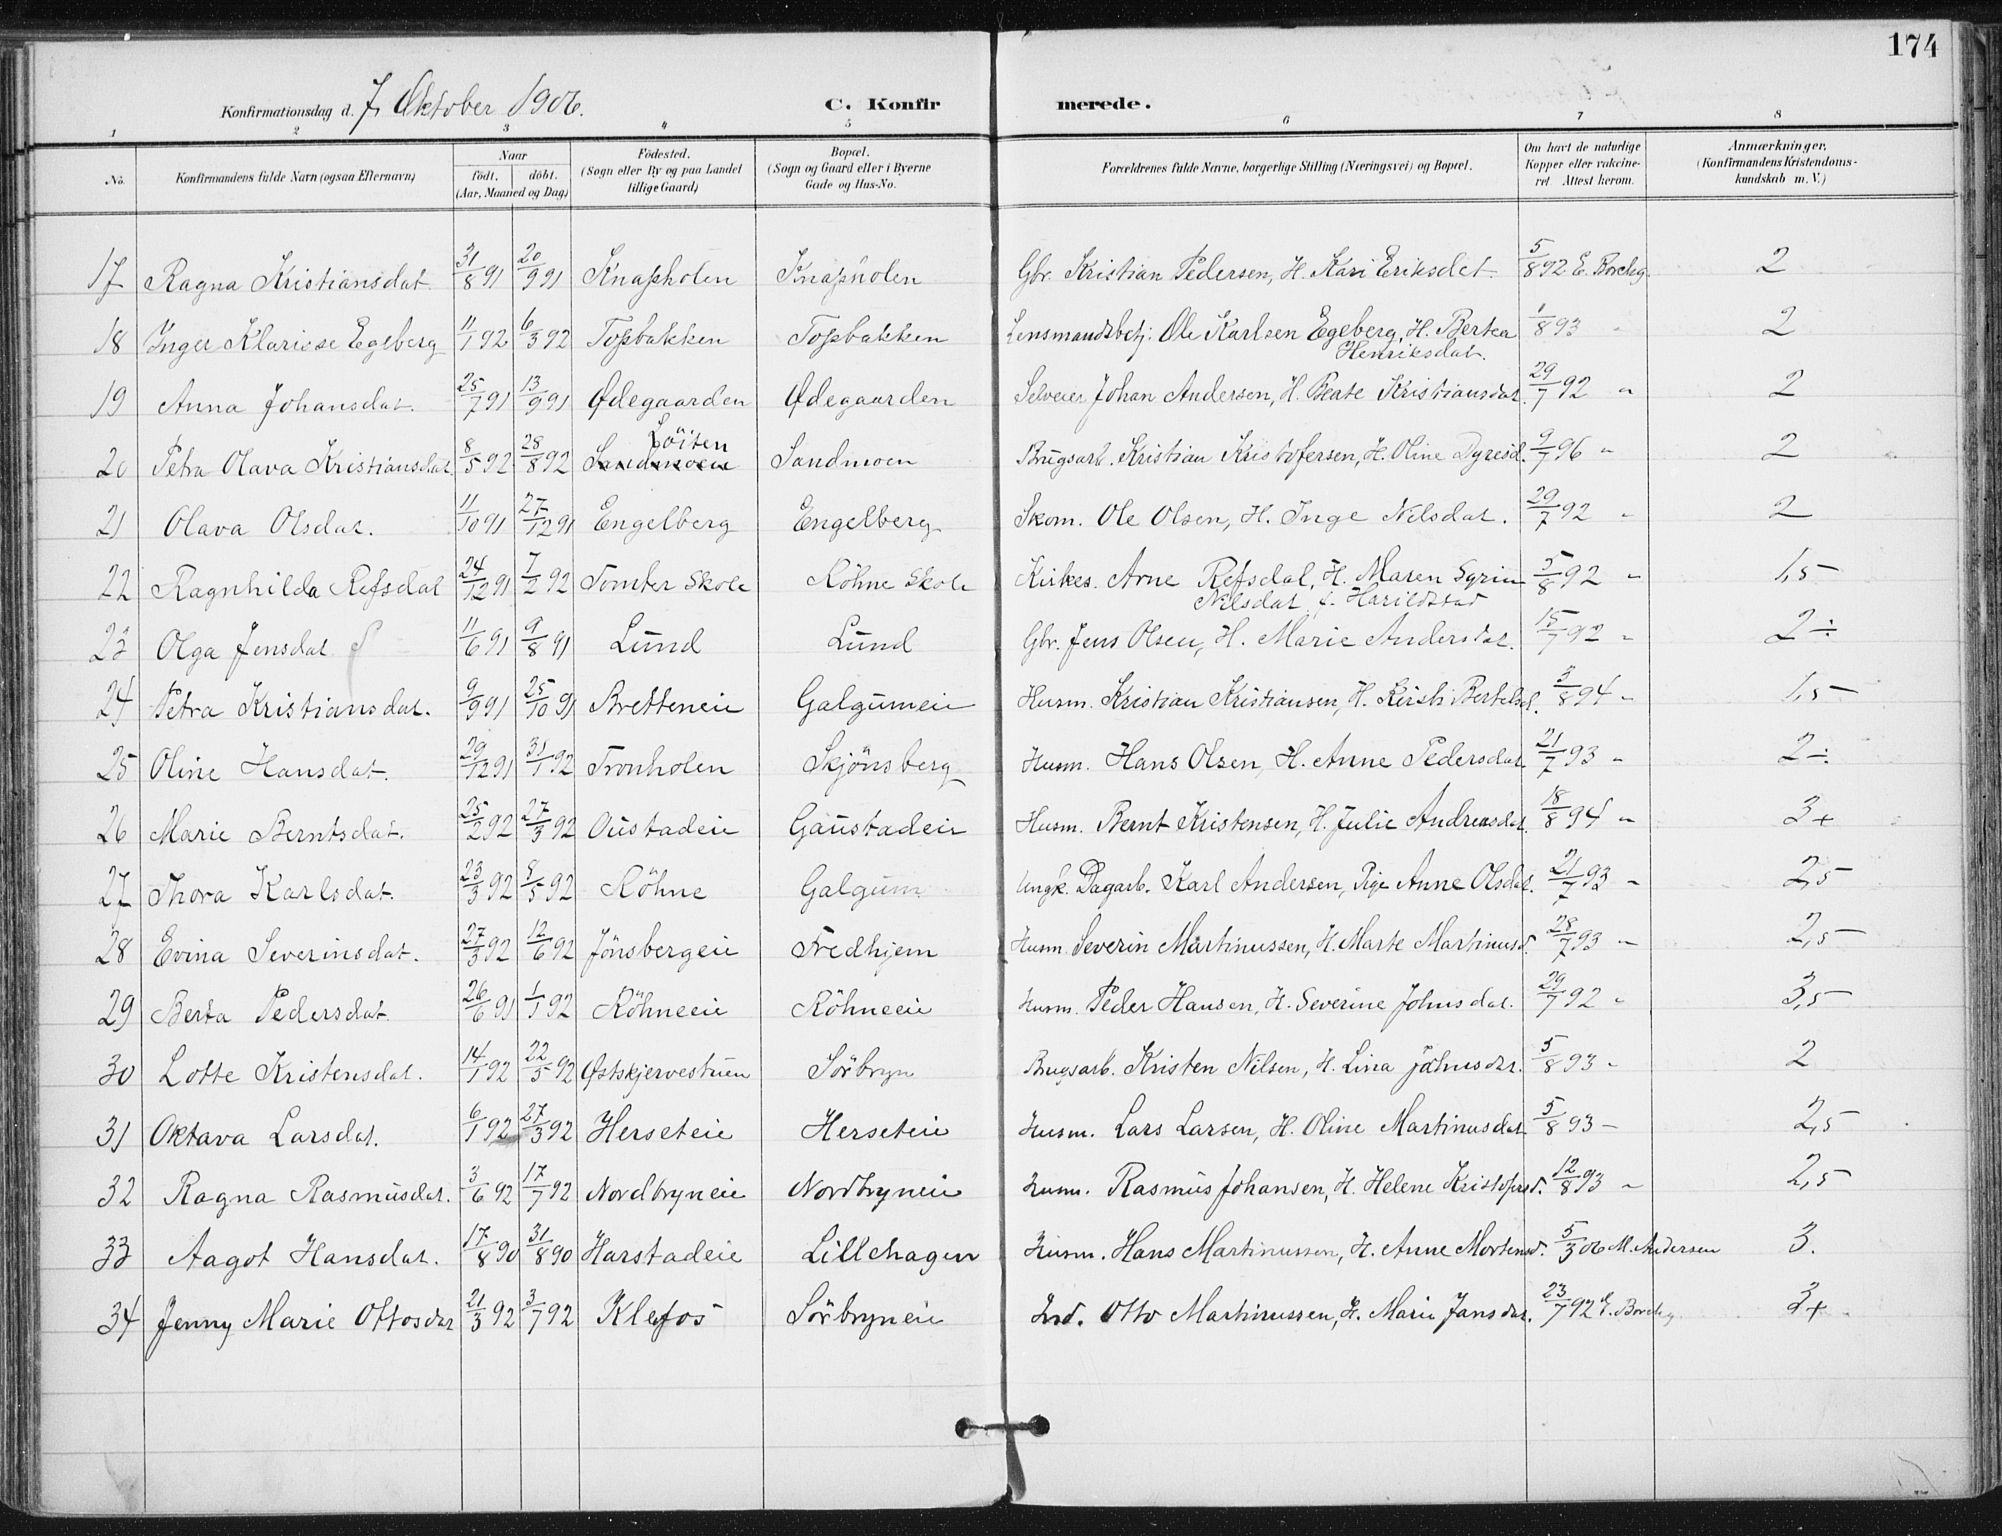 174
Konfirmationsdag d. 7 Oktober 1906. C. Konfirmerede.
1 2 3 4 5 6 7 8
No. Konfirmandens fulde Navn (ogsaa Efternavn) Naar födt. döbt. (Aar, Maaned og Dag) Födested. (Sogn eller By og paa Landet tillige Gaard) Bopæl. (Sogn og Gaard eller i Byerne Gade og Hus-No. Forældrenes fulde Navne, borgerlige Stilling (Næringsvei) og Bopæl. Om havt de naturlige Kopper eller vakcineret. Attest herom. Anmærkninger. (Konfirmandens Kristendomskundskab m. V.)
17 Ragna Kristiansdat. 31/8 91 20/9 91 Knapholen Knapholen Gbr. Kristian Pedersen, H. Kari Eriksdat. 5/8 92 E. Borchg. 2
18 Inger Klarisse Egeberg 11/1 92 6/3 92 Topbakken Topbakken Lensmandsbetj: Ole Karlsen Egeberg, H. Bertea 1/8 93 " 2
Henriksdat.
19 Anna Johansdat. 25/7 91 13/9 91 Ødegaarden Ødegaarden Selveier Johan Andersen, H. Beate Kristiansdat. 29/7 92 " 2
Löiten
20 Petra Olava Kristiansdat. 8/5 92 28/8 92 Sandmoen Sandmoen Brugsarb. Kristian Kristofersen, H. Oline Dyresd. 9/7 96 " 2
21 Olava Olsdat. 11/10 91 27/12 91 Engelberg Engelberg Skom. Ole Olsen, H. Inge Nilsdat. 29/7 92 " 2
22 Ragnhilda Refsdal 24/12 91 7/2 92 Tomter Skole Röhne Skole Kirkes. Arne Refsdal, H. Maren Sgrin 5/8 92 " 1,5
Nilsdat f. Harildstad
23 Olga Jensdat 11/6 91 9/8 91 Lund Lund Gbr. Jens Olsen, H. Marie Andersdat. 15/7 92 " 2÷
24 Petra Kristiansdat. 9/9 91 25/10 91 Bretteneie Galgumeie Husm. Kristian Kristiansen, H. Kirsti Bertelsd. 3/8 94 " 1,5
25 Oline Hansdat. 29/12 91 31/1 92 Tronholen Skjönsberg Husm. Hans Olsen, H. Anne Pedersdat. 21/7 93 " 2÷
26 Marie Berntsdat. 25/2 92 27/3 92 Oustadeie Gaustadeie Husm. Bernt Kristensen, H. Julie Andreasdat. 18/8 94 " 3+
27 Thora Karlsdat. 23/3 92 8/5 92 Röhne Galgum Ungk. Dagarb. Karl Andersen, Pige Anne Olsdat. 21/7 93 " 2,5
28 Evina Severinsdat. 27/3 92 12/6 92 Jönsbergeie Fredhjem Husm. Severin Martinussen, H. Marte Martinusd. 28/7 93 " 2,5
29 Berta Pedersdat. 26/6 91 1/1 92 Röhneeie Röhneeie Husm. Peder Hansen, H. Severine Johnsdat. 29/7 92 " 3,5
30 Lotte Kristensdat. 14/1 92 22/5 92 Østskjervestuen Sörbryn Brugsarb. Kristen Nilsen, H. Lina Johnsdat. 5/8 93 " 2
31 Oktava Larsdat. 6/1 92 27/3 92 Herseteie Herseteie Husm. Lars Larsen, H. Oline Martinusdat. 5/8 93 " 2,5
32 Ragna Rasmusdat. 3/6 92 17/7 92 Nordbryneie Nordbryneie Husm. Rasmus Johansen, H. Helene Kristofersd. 12/8 93 " 2,5
33 Aagot Hansdat. 17/8 90 31/8 90 Harstadeie Lillehagen Husm. Hans Martinussen, H. Anne Mortensd. 5/3 06 M. Andersen 3.
34 Jenny Marie Ottosdat 21/3 92 3/7 92 Klefos Sörbryneie Ind. Otto Martinussen, H. Marie Jansdat. 23/7 92 E. Borchg. 3+